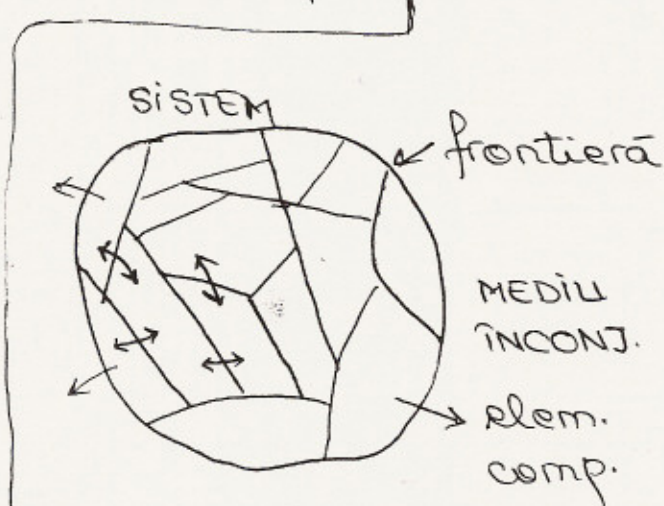 SISTEM
frontieră
MEDIU
ÎNCONJ.
elem.
comp.